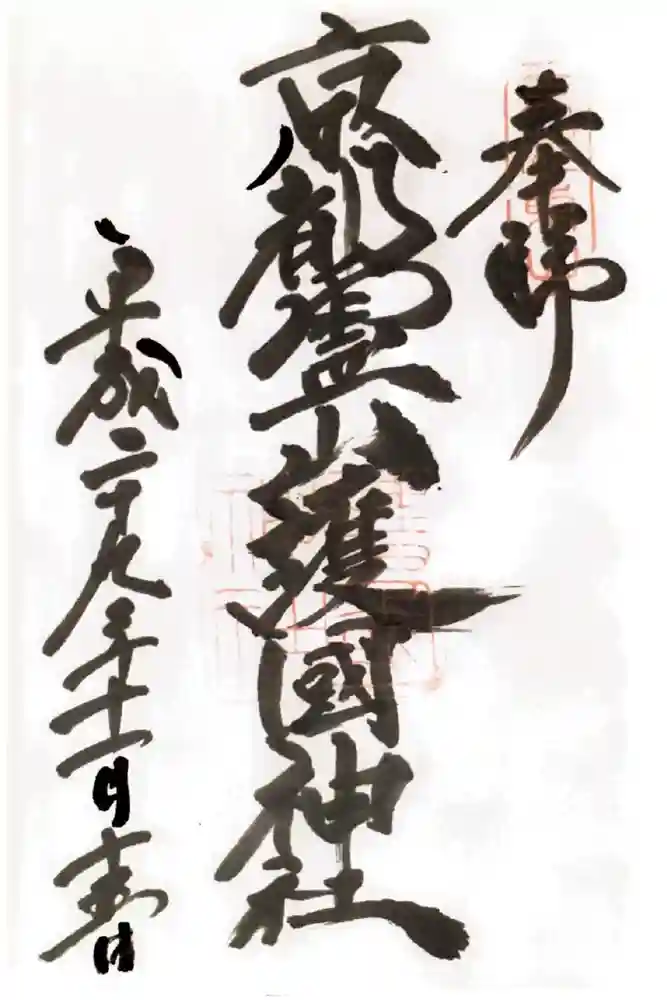 奉拝
京都霊山護國神社
平成二十九年十一月十五日